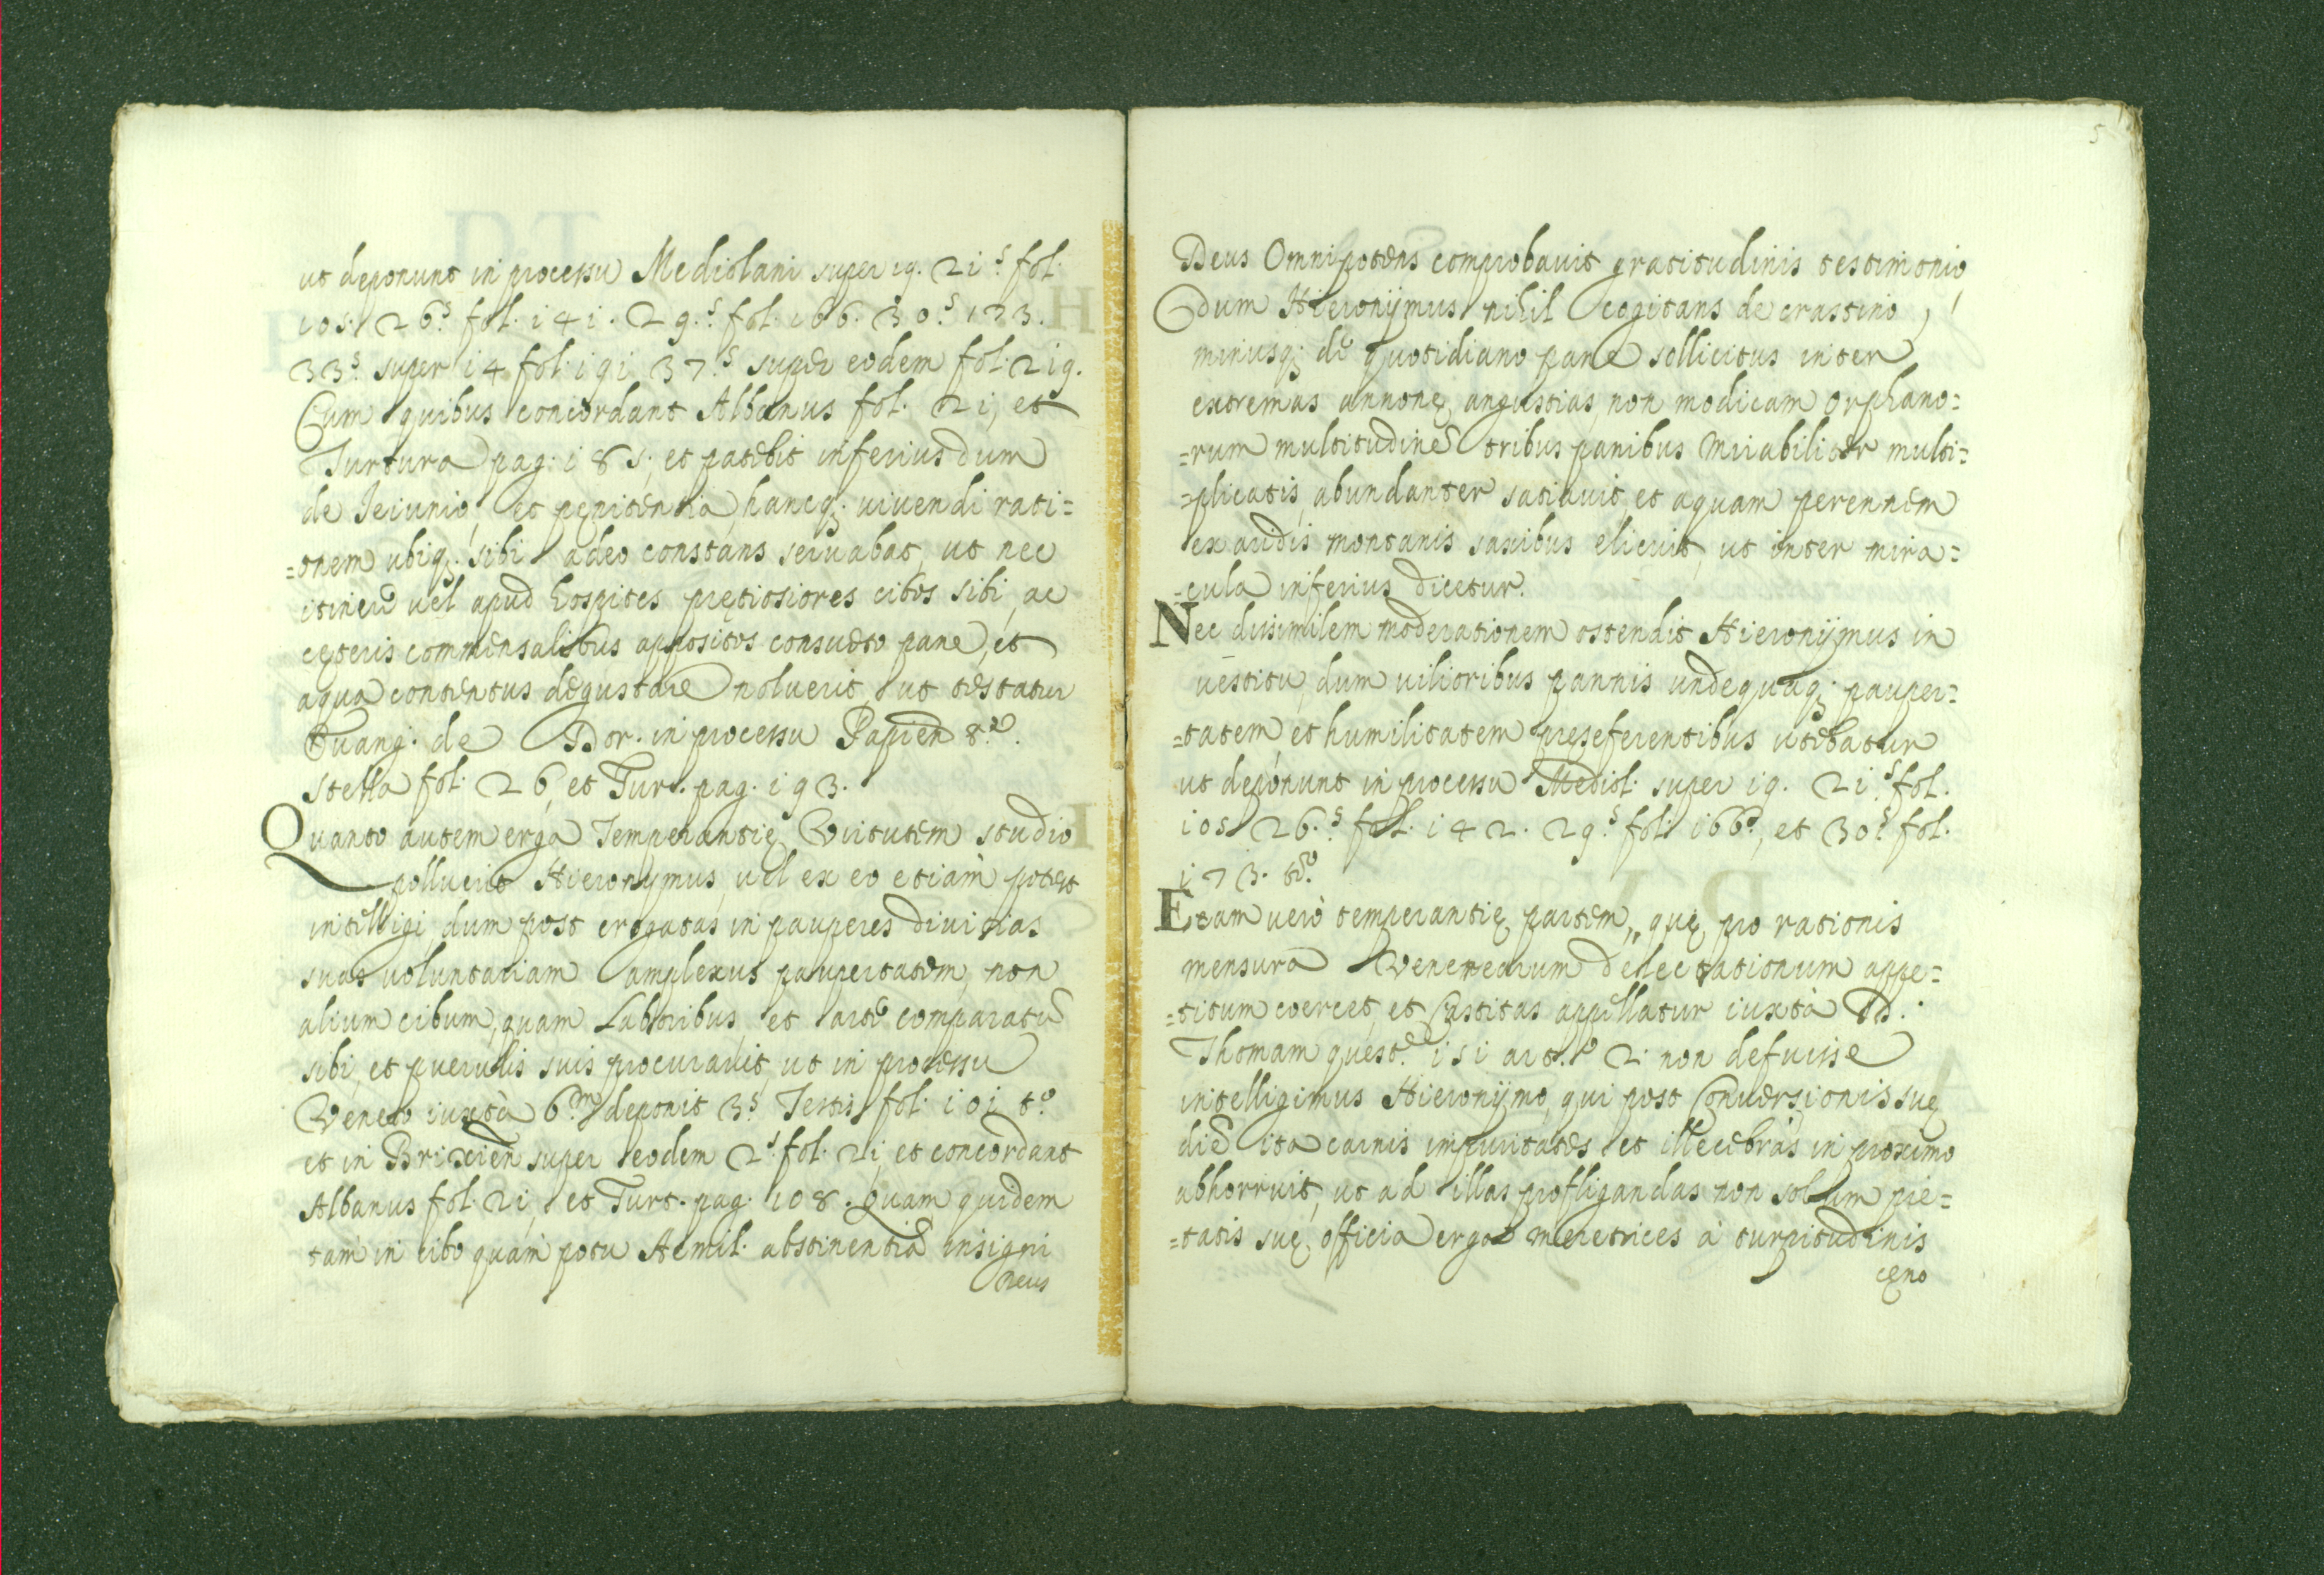 ut deponunt in processu Mediolani super 19. 21.s fol.
105. 26.s fol. 141. 29.s fol. 166. 30.s 173.
33.s super 14 fol. 191 37.s super eodem fol. 219.
Cum quibus concordant Albanus fol. 21, et
Turtura pag. 185; et patebit inferius dum
de Ieiunio, et pęnitentia, hancq; uiuendi rati=
=onem ubiq; sibi adeo constans seruabat, ut nec
itinere uel apud hospites prętiosiores cibos sibi, ac
cęteris commensalibus appositos consueto pane, et
aqua contentus degustare noluerit ut testatur
Euang. de Dor. in processu Papien 8.
Stella fol. 26, et Turt. pag. 193.
Quanto autem erga Temperantię Virtutem studio
polluerit Hieronymus, uel ex eo etiam potest
intelligi, dum post erogatas in pauperes diuitias
suas uoluntariam amplexus paupertatem, non
alium cibum, quam Laboribus, et arte comparatũ
sibi, et puerulis suis procurauit, ut in processu
Veneto iuxtà 6.m deponit 3.s Testis fol. 101 t.o
et in Brixien super eodem 2.s fol. 21, et concordant
Albanus fol. 21, et Turt. pag. 108. Quam quidem
tam in cibo quàm potu Aemil. abstinentiã insigni
Deus
5
Deus Omnipotens comprobauit gratitudinis testimonio,
dum Hieronÿmus nihil cogitans de crastino,
minusq; de quotidiano pane sollicitus inter
extremas annonę angustias, non modicam orphano=
=rum multitudinẽ tribus panibus mirabiliter multi=
=plicatis, abundanter satiauit, et aquam perennem
ex aridis montanis saxibus elicuit, ut inter mira=
=cula inferius dicetur.
Nec dissimilem moderationem ostendit Hieronÿmus in
uestitu, dum uilioribus pannis undequaq; pauper=
=tatem, et humilitatem pręseferentibus utebatur
ut deponunt in processu Mediol. super 19. 21.s fol.
105 26.s fol. 142. 29.s fol. 166, et 30.s fol.
173. t.o
Etam verò temperantię partem, quę pro rationis
mensura Venerearum delectationum appe=
=titum coercet, et Castitas appellatur iuxtà D.
Thomam quęst. 151 art. 2. non defuisse
intelligimus Hieronÿmo, qui post Conuersionis suę
diẽ ita carnis impuritates, et illecebras in proximo
abhorruit, ut ad illas profligandas non solum pie=
=tatis suę officia erga meretrices à turpitudinis
cęno